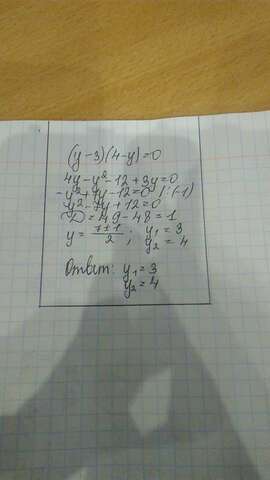 (y-3)(4-y)=0
4y-y²-12+3y=0
-y²+7y-12=0 |:(-1)
y²-7y+12=0
D=49-48=1
y=(7±1)/2; y₁=3
y₂=4
Ответ: y₁=3
y₂=4